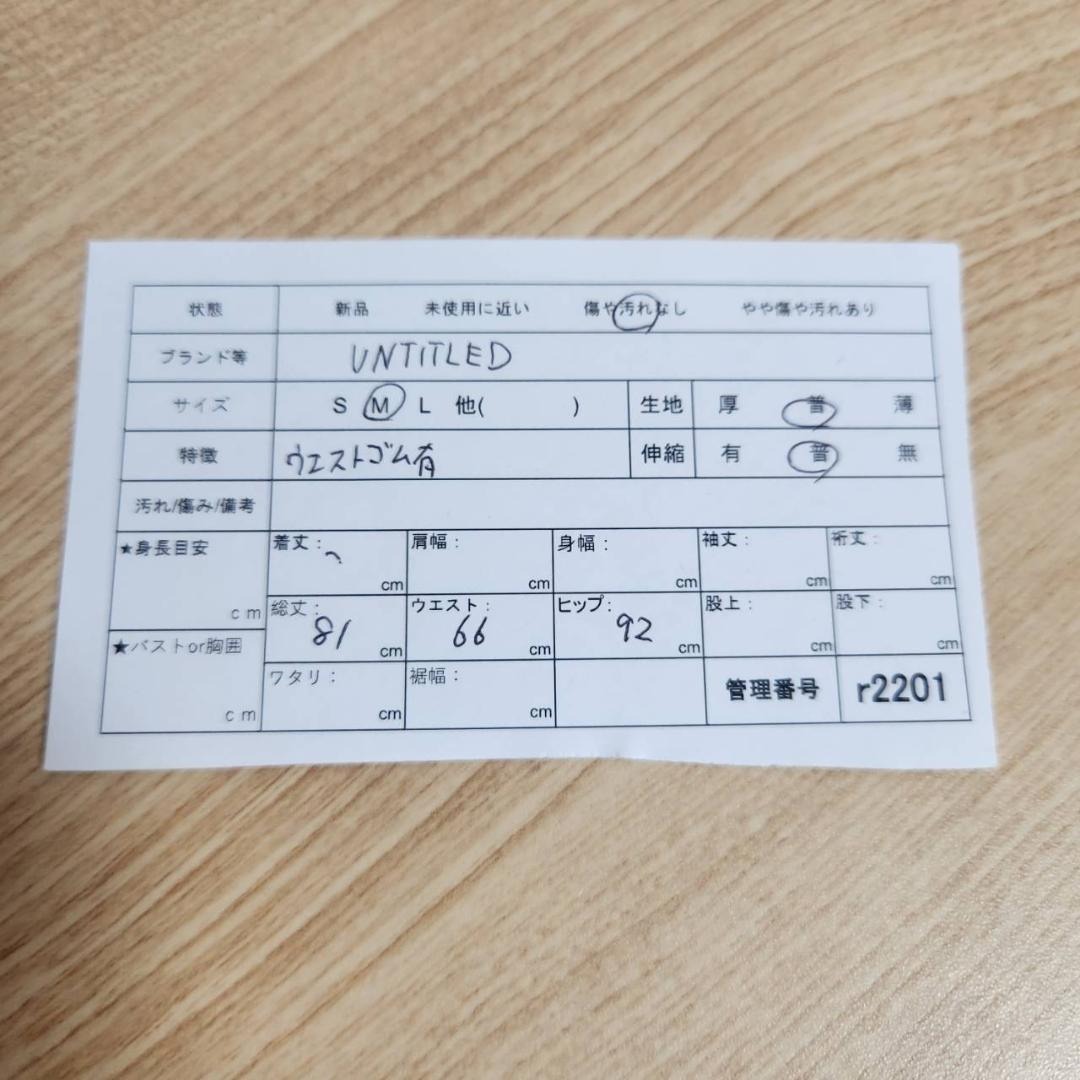 状態 新品 未使用に近い 傷や汚れなし やや傷や汚れあり
ブランド等 UNTITLED
サイズ S M L 他( ) 生地 厚 普 薄
特徴 ウエストゴム有 伸縮 有 普 無
汚れ/傷み/備考
★身長目安 cm
着丈: cm 肩幅: cm 身幅: cm 袖丈: cm 裄丈: cm
総丈: 81 cm ウエスト: 66 cm ヒップ: 92 cm 股上: cm 股下: cm
★バストor胸囲 cm
ワタリ: cm 裾幅: cm 管理番号 r2201